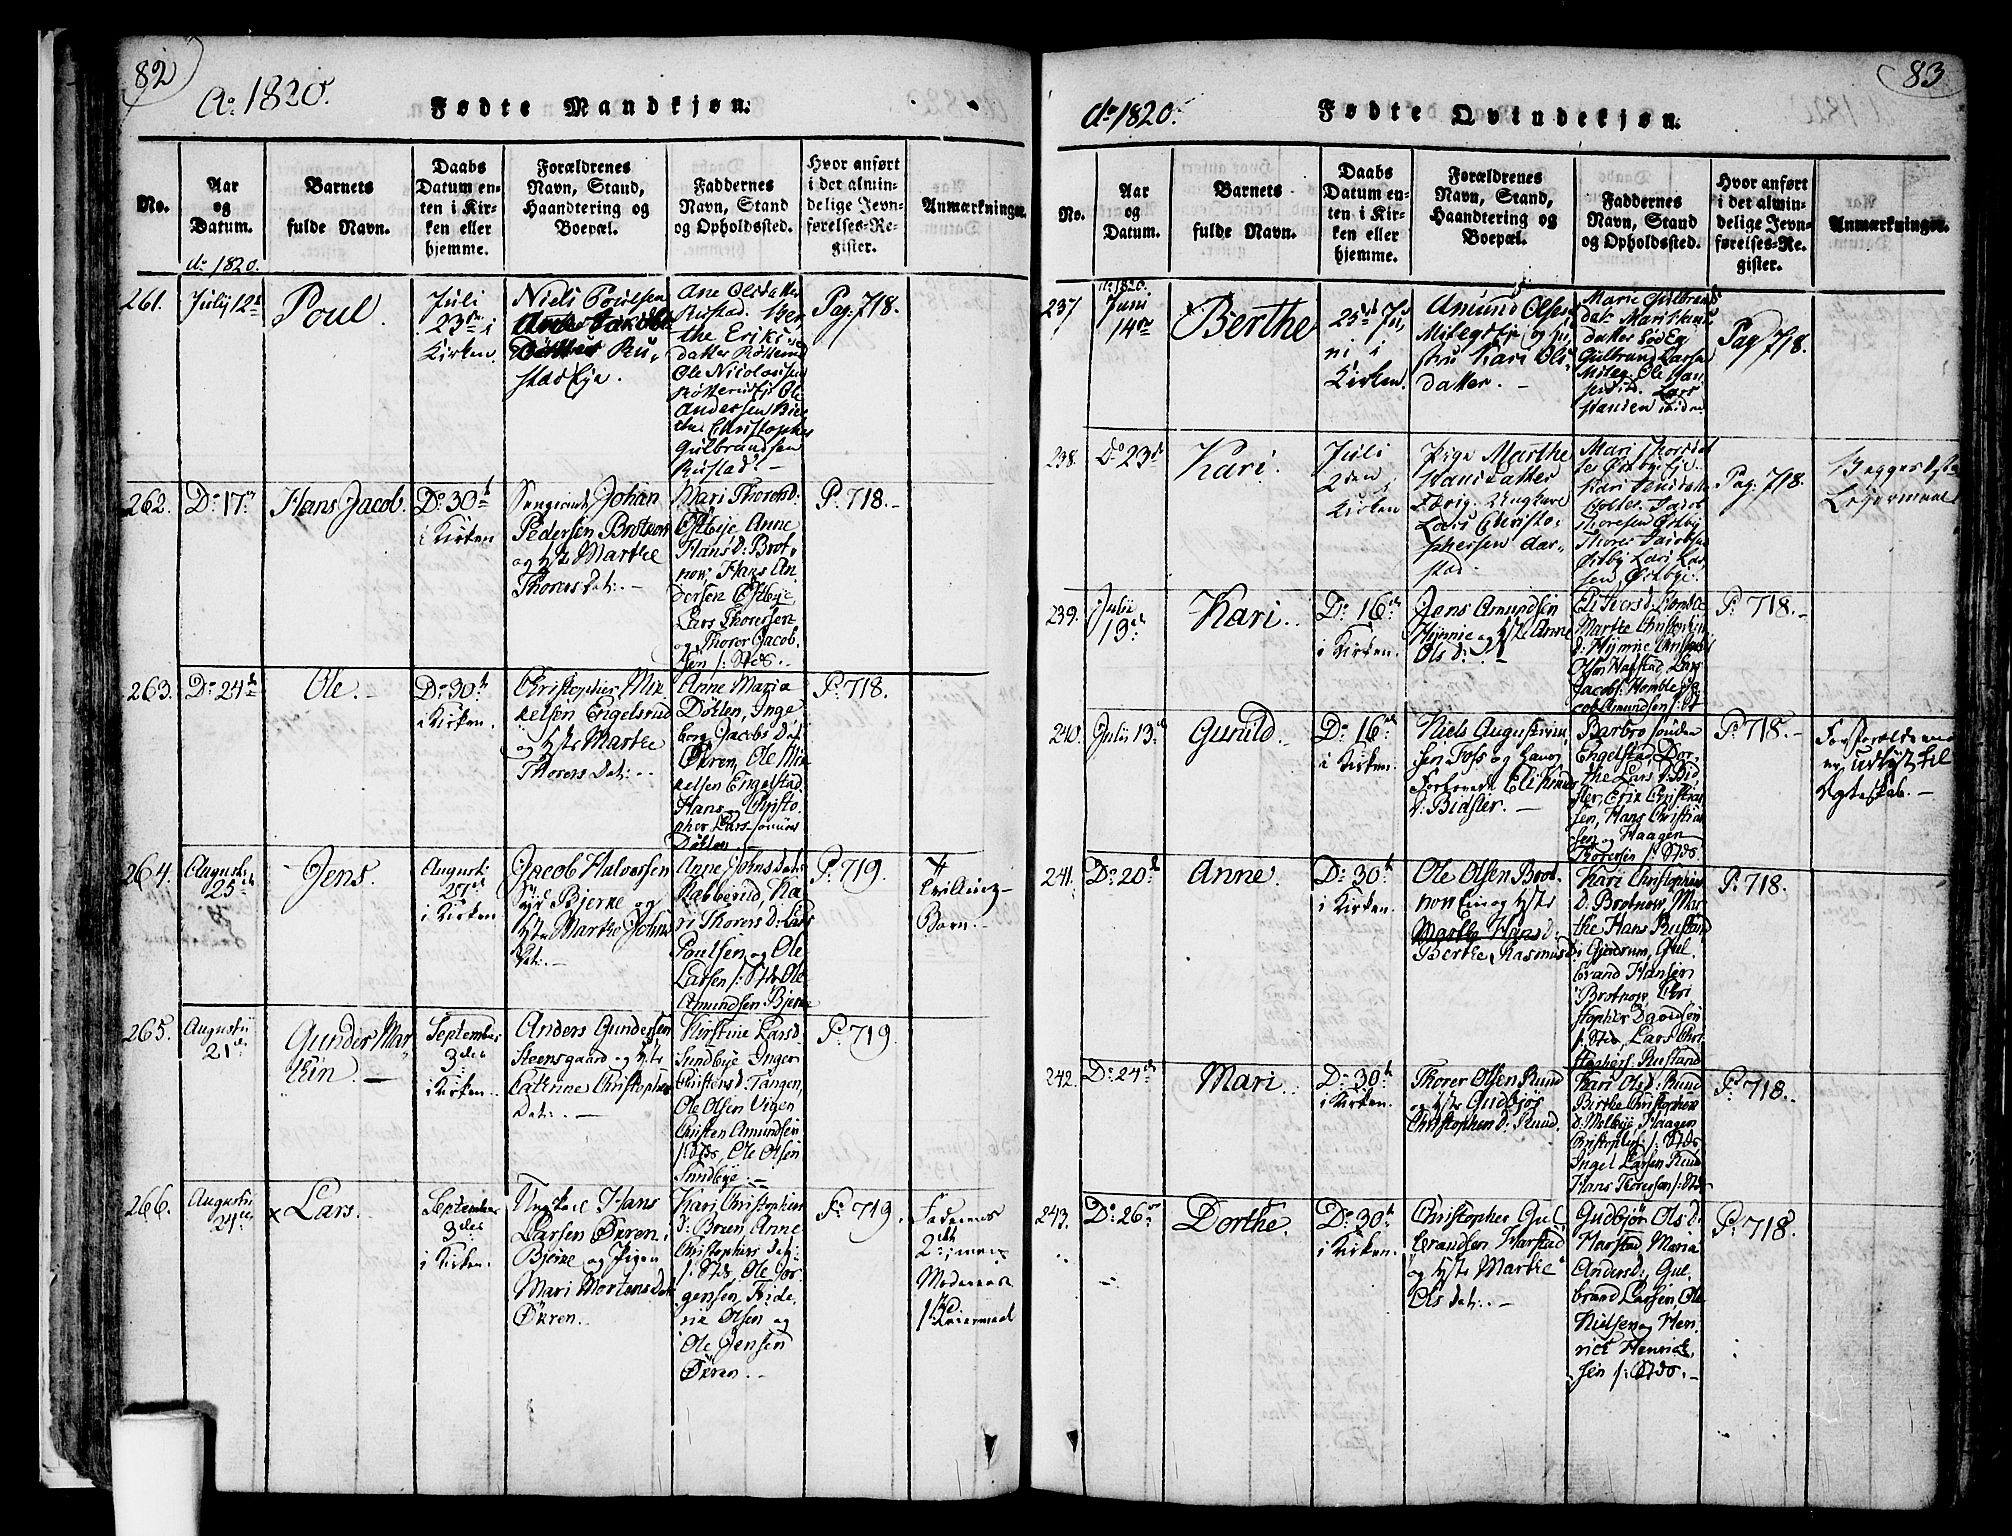 82
Ao 1820.
Fødte Mandkjøn.
No.
Aar
og
Datum.
Barnets
fulde Navn.
Daabs
Datum en-
ten i Kir-
ken eller
hjemme.
Forældrenes
Navn, Stand,
Haandtering og
Boepæl.
Faddernes
Navn, Stand
og Opholdssted.
Hvor anført
i det almin-
delige Jevn-
førelses-Re-
gister.
Anmærkninger.
do 1820.
261.
July 12te
Poul.
Juli
23de i
Kirken.
Niels Poulsen
Ru,
stadEje.
Ane Olsdatter
Rustad. Ber
the Eriks
datter
Ole Nicolaisen
Ole
Andersen
Christopher
Gulbrandsen
Rustad.
Pag. 718.
262.
Do 17de
Hans Jacob.
Do 30te
i Kirken
Johan
Pedersen Brotnov
og Hst. Marthe
Thorersdat:
Mari Thorersd.
Anne
Hansd: Brot,
nov, Hans An
dersen
Lars Thorersen
og Thorer Jacob
sen /: Stds.
P. 718.
263.
Do 24de
Ole.
Do 30te
i Kirken.
Christopher Mik
kelsen Engelsrud
og Hst. Marthe
Thorersdat:
Anne Maria
Døhlen, Inge
borg Jacobsdat
Økren, Ole Mik
kelsen Engelstad
Hans Christo
pher Lars
Døhlen.
P. 718.
264.
Augusti
25de
Jens.
Augusti
27de
i Kirken.
Jacob Halvorsen
Syd Bjerke og
Hst. Marthe Johns
dat:
Anne Johnsdat:
Ka
ri Thorersd: Lars
Poulsen og Ole
Larsen /: Stds Ole
Amundsen Bjerke
P. 719.
Tvilling-
Barn.
265.
Augustii
21de
Gunder Mar
thin.
September
3die
i Kirken.
Anders Gundersen
Steensgaard og Hst.
Catrine Christophers
dat:
Kirstine Larsd.
Sundbye Inger
Christensd: Tangen,
Ole Olsen Vigen
Christen Amundsen
/: Stds, Ole Olsen
Sundbye
P. 719.
266.
Augustii
24de
× Lars.
September
3die
i Kirken.
Ungkarl Hans
Larsen Økren.
Bjerke og Pigen
Mari Mortensdat
Økren.
Kari Christophers
d: Bruen, Anne
Christophersdat:
/: Stds, Ole Jør
gensen, Fride,
rik Olsen og
Ole Jensen
Økren.
P. 719.
Faderens
2det, men
Moderens
1ste
Leiermaal
83
do 1820.
Fødte Qvindekjøn.
No.
Aar
og
Datum.
Barnets
fulde Navn.
Daabs
Datum en-
ten i Kir-
ken eller
hjemme.
Forældrenes
Navn, Stand,
Haandtering og
Boepæl.
Faddernes
Navn, Stand
og Opholdssted.
Hvor anført
i det almin-
delige Jevn-
førelses-Re-
gister.
Anmærkninger.
do 1820.
237
Juni
14de
Berthe
25de Ju,
ni i
Kirken.
Amund Olsen
og Hu,
stru Kari Ols
datter.
Marie Gulbrands
dat. Mari Hans
datter
Gulbran Larsen
Ole Han
sen Lars
Hansen
Pag 718.
238.
Do 23de
Kari.
Juli
2den i
Kirken
Pige Marthe
Hansdatter
Ungkarl
Lars Christo,
phersen Aar,
stad.
Mari Thorsdat
ter
Kari
Jacob
Thoresen Østby
Thorer Jacobsen
Østby Lars Lar
sen, Østbye.
Pag. 718.
Begges 1ste
Leiermaal
239.
Julii
13de
Kari.
Do 16de
i Kirken.
Hans Amundsen
Hymne og Hst. Anne
Olsd:
Homble
Marthe
d: Hymne
Olsen Harstad, Lars
Jacobs: Homble Ja
cob Amundsen /: St
P. 718.
240.
Julii 13de
Gunild.
Do 16de
i Kirken.
Niels Augustinu
sen Foss og hans
Forlovede Eli Knuds
d: Bidsler.
Barbro
Engelstad, Dor
the Larsd: Bid
sler, Erik Christian
sen, Hans Christian
sen og Haagen
Thoresen /: Stds
P. 718.
Forældrene
er udlyst til
Ægteskab.
241.
Do 20de
Anne.
Do 30te
i Kirken.
Ole Olsen Brot
nov Eie og Hst.
Marthe Hansd:
Berthe Rasmusd:
Kari Christophers
d: Brotnov, Mar
the Hans Rustad
i Gjerdrum, Gul
brand Hansen
Brotnov, Chri
stopher Davidsen
/: Stds, Lars Chri
stophers: Rustand
P. 718.
242.
Do 24de
Mari.
Do 30te
i Kirken.
Thorer Olsen Rund
og Hst. Gudbjør
Christophersd: Rund.
Kari Olsd: Rund
Berthe Christophers
d: Melbye, Haagen
Christophers: /: Stds
Ingel Larsen Rund
Hans Thoresen /: Stds
P. 718.
243.
Do 26de
Dorthe.
Do 30te
i Kirken.
Christopher Gul
brandsen Harstad
og Hst. Marthe
Olsdat:
Gudbjør Olsd:
Harstad, Maria
Andersd:, Gul
brand Larsen, Ole
Nielsen og Hen
rick Henrick
sen /: Stds.
P. 718.